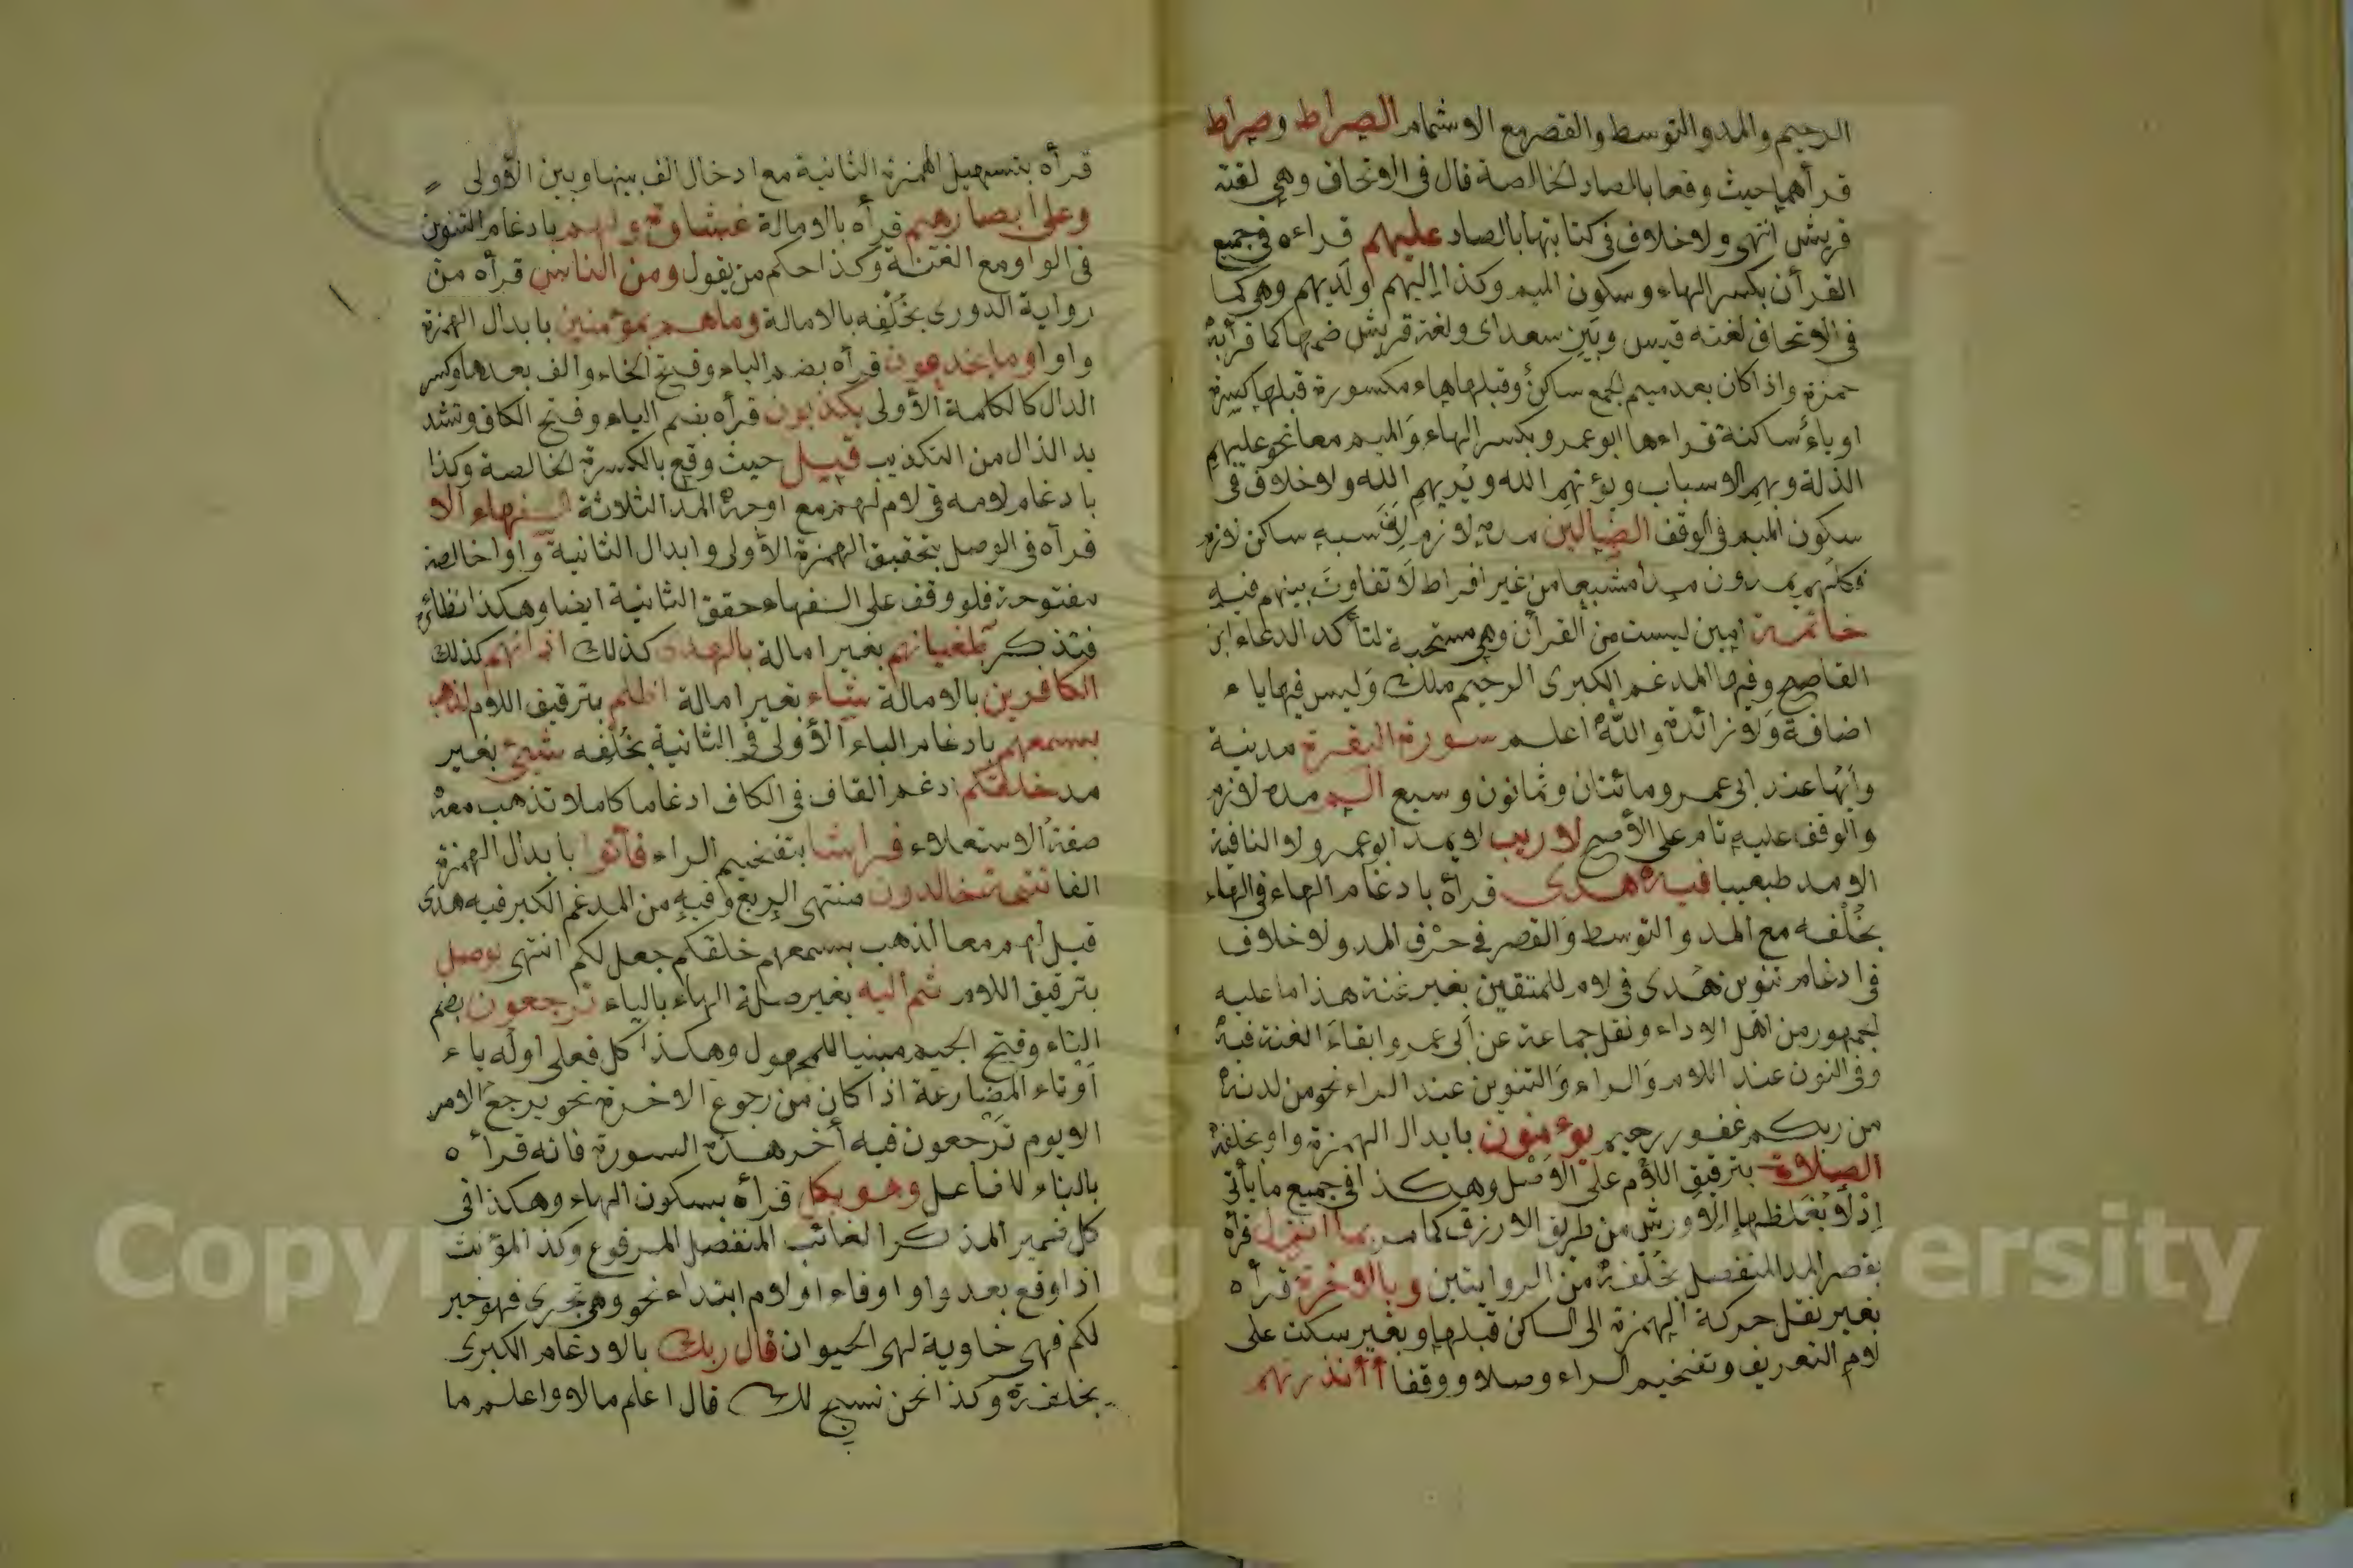 الرحيم والمد والتوسط والقصر مع الاشمام الصراط وصراط
قرأهما حيث وقعا بالصاد الخالصة قال فى الاتحاف وهي لغة
قريش انتهى ولا خلاف فى كتابتها بالصاد عليهم قراءه فى جميع
القرأن بكسر الهاء وسكون الميم وكذا اليهم او لديهم وهى كما
فى الاتحاف لغة قيس وبني سعد اى ولغة قريش ضمها كما قرأ به
حمزة واذا كان بعد ميم الجمع ساكن وقبلها هاء مكسورة قبلها كسرة
او ياء ساكنة قراءها ابو عمرو بكسر الهاء والميم معا نحو عليهم
الذلة وبهم الاسباب ويؤتهم الله ويريهم الله ولا خلاف فى
سكون الميم فى الوقف الضالين مده لازم لان سببه ساكن لازم
فكلهم يمدون مدا مشبعا من غير افراط لا تفاوت بينهم فيه
خاتمة امين ليست من القرأن وهي مستحبة لتأكد الدعاء ابن
القاصح وفيها المدغم الكبرى الرحيم ملك وليس فيها ياء
اضافة ولا زائدة والله اعلم سورة البقرة مدنية
وايها عند ابى عمرو مائتان وثمانون وسبع الم مده لازم
والوقف عليه تام على الأصح لا ريب لا يمد ابو عمرو لا النافية
الا مد طبيعيا فيه هدى قرأه بادغام الهاء فى الهاء
بخلفه مع المد والتوسط والقصر فى حرف المد ولا خلاف
فى ادغام تنوين هدى فى لام للمتقين بغير غنة هذا ما عليه
لجمهور من اهل الاداء ونقل جماعة عن ابى عمرو ابقاء الغنة فيه
وفى النون عند اللام والراء والتنوين عند الراء نحو من لدنه
من ربكم غفور رحيم يؤمنون بابدال الهمزة واو بخلفه
الصلاة بترقيق اللام على الاصل وهكذا فى جميع ما يأتى
اذ لا يغلظها الا ورش من طريق الازرق كما مر بما انزل قرأه
بقصر المد المنفصل بخلفه من الروايتين وبالاخرة قرأه
بغير نقل حركة الهمزة الى الساكن قبلها وبغير سكت على
لام التعريف وتفخيم الراء وصلا ووقفا أأنذرتهم
قرأه بتسهيل الهمزة الثانية مع ادخال الف بينها وبين الاولى
وعلى ابصارهم قرأه بالامالة غشاوة ولهم بادغام التنوين
فى الواو مع الغنة وكذا حكم من يقول ومن الناس قرأه من
رواية الدورى بخلفه بالامالة وما هم بمؤمنين بابدال الهمزة
واوا وما يخدعون قرأه بضم الياء وفتح الخاء والف بعدها وكسر
الدال كالكلمة الأولى يكذبون قرأه بضم الياء وفتح الكاف وتشد
يد الذال من التكذيب قيل حيث وقع بالكسرة الخالصة وكذا
بادغام لامه فى لام لهم مع اوجه المد الثلاثة السفهاء الا
قرأه فى الوصل بتحقيق الهمزة الأولى وابدال الثانية واوا خالصة
مفتوحة فلو وقف على السفهاء حقق الثانية ايضا وهكذا نظائره
فتذكر طغيانهم بغير امالة بالهدى كذلك اذانهم كذلك
الكافرين بالامالة شاء بغير امالة اظلم بترقيق اللام لذهب
بسمعهم بادغام الباء الأولى فى الثانية بخلفه شيئ بغير
مد خلقكم ادغم القاف فى الكاف ادغاما كاملا تذهب معه
صفة الاستعلاء فراشا بتفخيم الراء فأتوا بابدال الهمزة
الفا تتمة خالدون منتهى الربع وفيه من المدغم الكبر فيه هدى
قبل لهم معا لذهب بسمعهم خلقكم جعل لكم انتهى يوصل
بترقيق اللام ثم اليه بغير صلة الهاء بالياء ترجعون بضم
التاء وفتح الجيم مبنيا للمجهول وهكذا كل فعل اوله ياء
او تاء المضارعة اذا كان من رجوع الاخرة نحو يرجع الامر
الا يوم ترجعون فيه أخر هذه السورة فانه قرأه
بالبناء للفاعل وهو بكل قرأه بسكون الهاء وهكذا فى
كل ضمير المذكر الغائب المنفصل المرفوع وكذا المؤنث
اذا وقع بعد واو او فاء او لام ابتداء نحو وهى تجرى فهو خير
لكم فهى خاوية لهى الحيوان قال ربك بالادغام الكبرى
بخلفه وكذا نحن نسبح لك قال اعلم مالا واعلم ما
Copyright © King Saud University